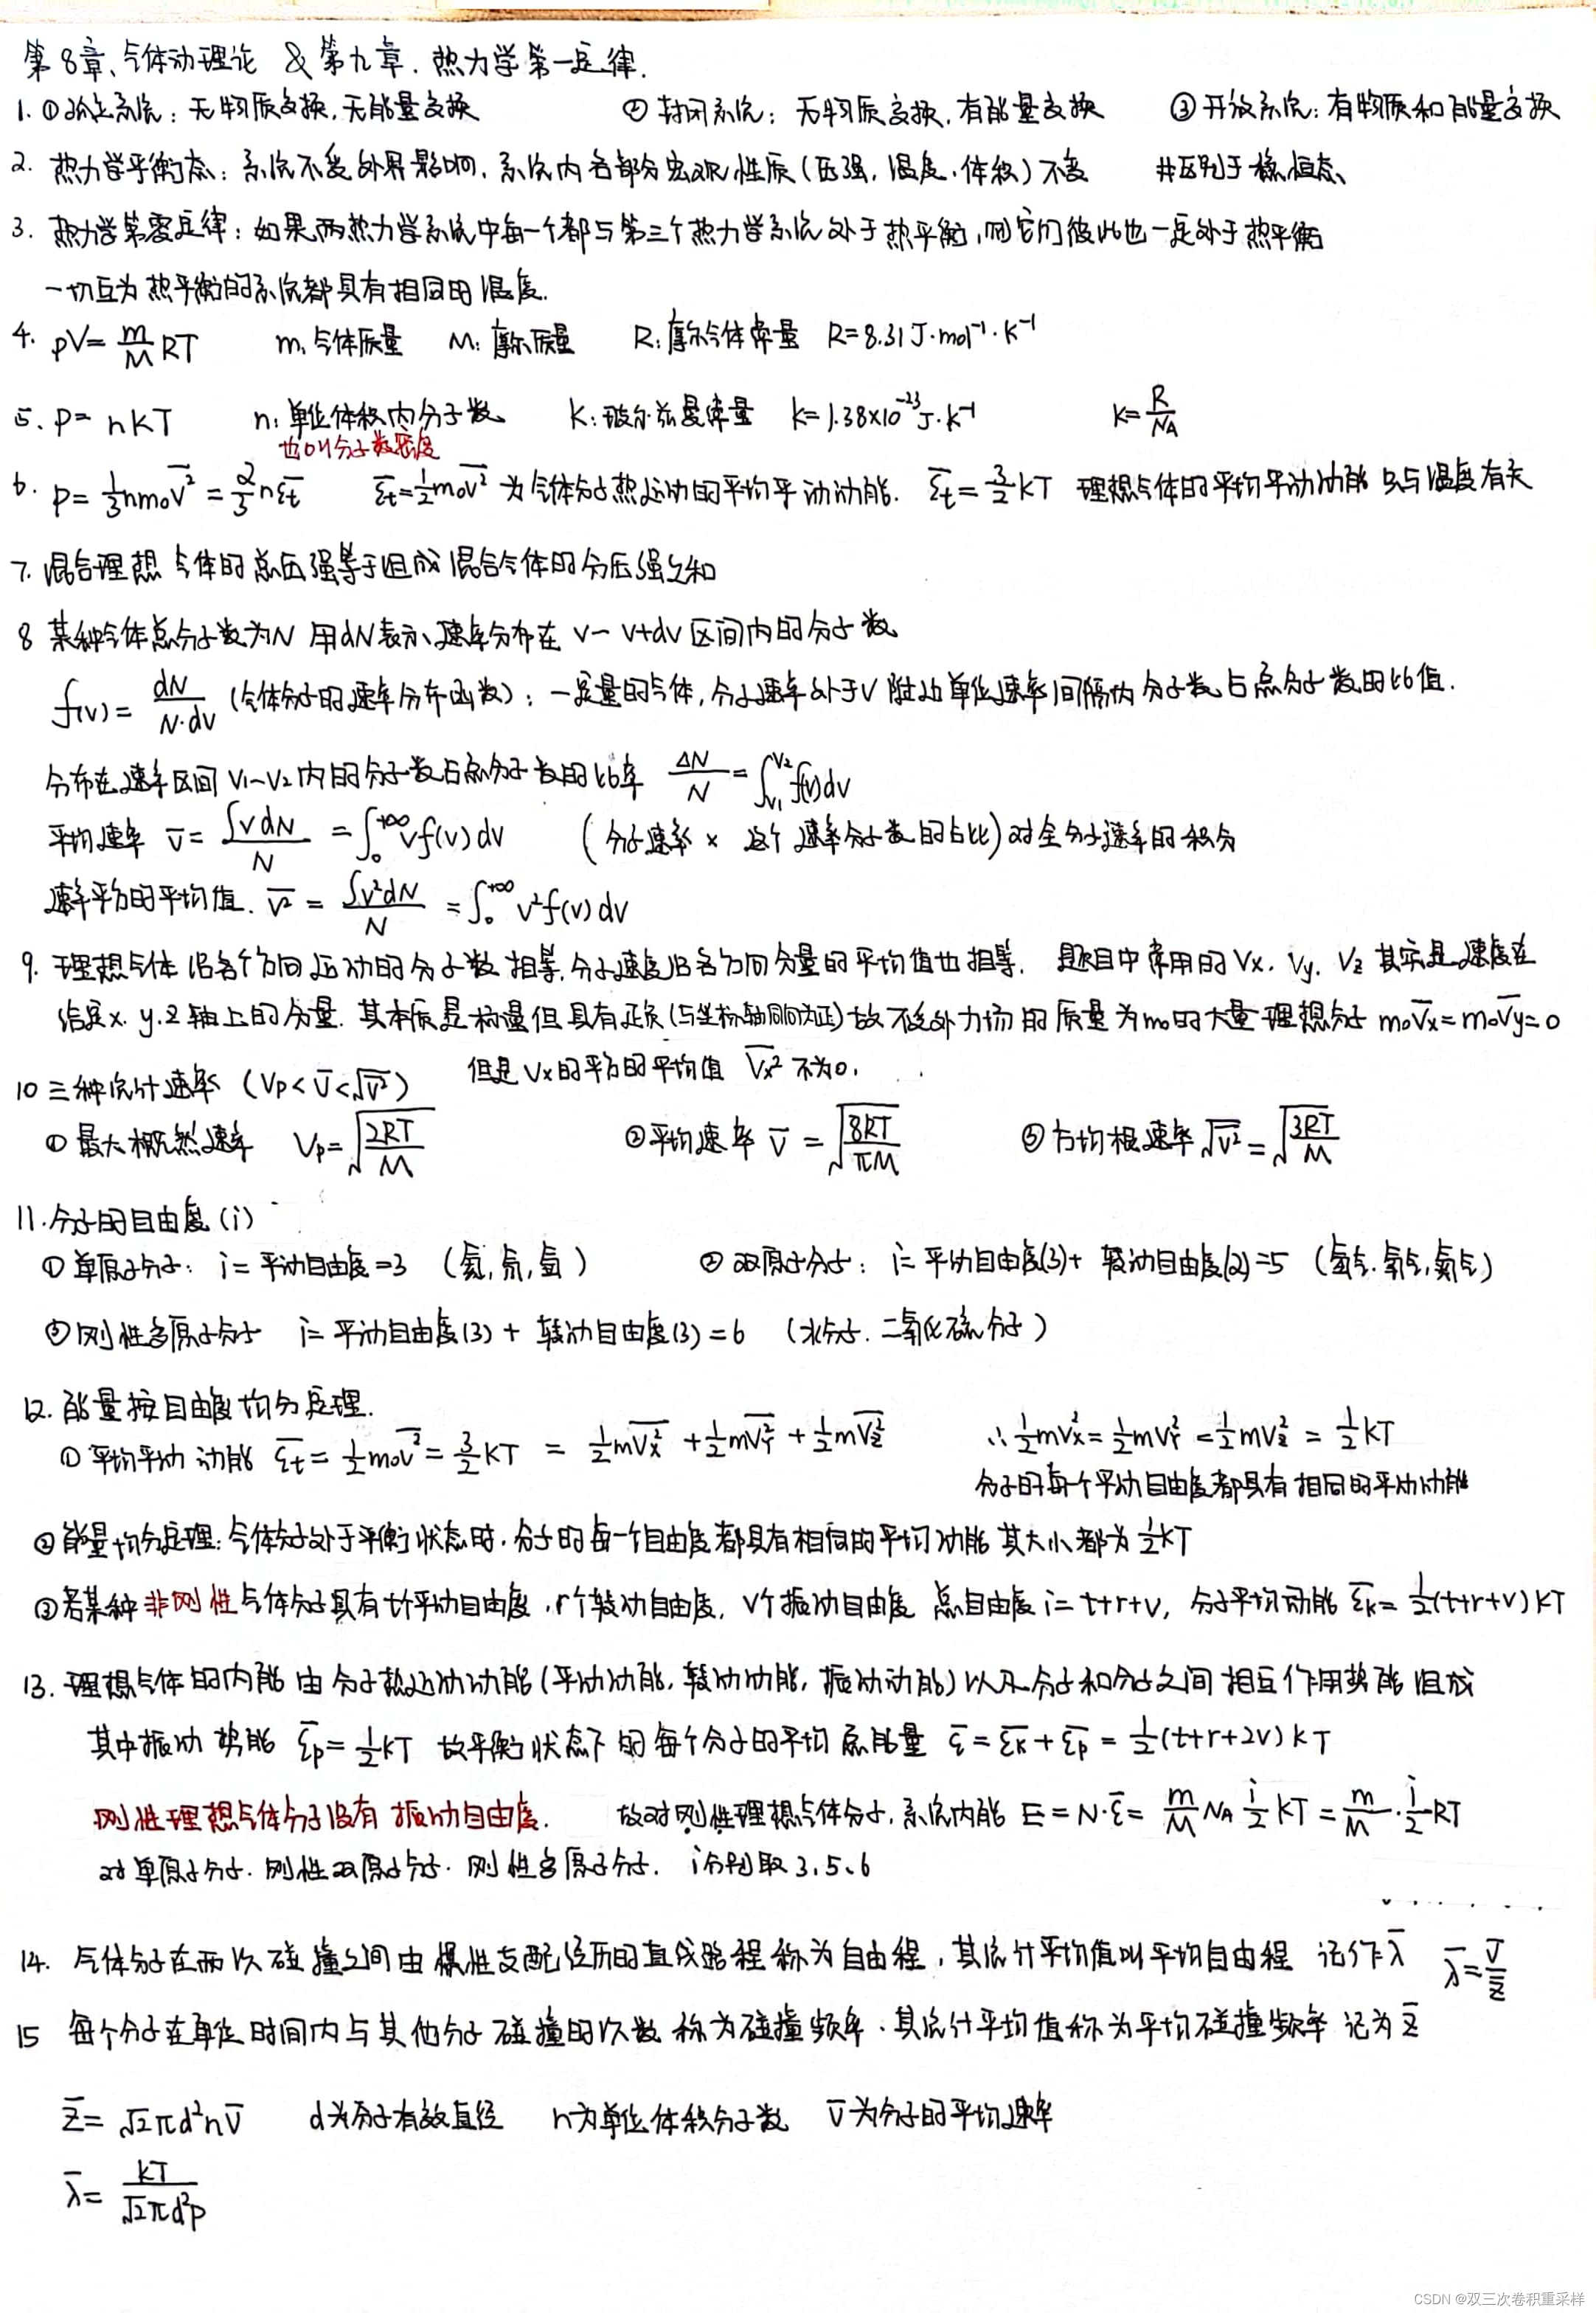 第8章、气体动理论 & 第九章. 热力学第一定律.
1. ①孤立系统: 无物质交换, 无能量交换 ②封闭系统: 无物质交换, 有能量交换 ③开放系统: 有物质和能量交换
2. 热力学平衡态: 系统不受外界影响, 系统内各部分宏观性质(压强, 温度, 体积)不变 #区别于稳恒态
3. 热力学第零定律: 如果两热力学系统中每一个都与第三个热力学系统处于热平衡, 则它们彼此也一定处于热平衡
一切互为热平衡的系统都具有相同的温度.
4. pV=m/M RT m: 气体质量 M: 摩尔质量 R: 摩尔气体常量 R=8.31J·mol⁻¹·K⁻¹
5. P= nKT n: 单位体积内分子数 K: 玻尔兹曼常量 k=1.38×10⁻²³J·k⁻¹ K=R/NA
也叫分子数密度
6. P=1/3 nm₀v̅²=2/3 nε̅t ε̅t=1/2 m₀v̅² 为气体分子热运动的平均平动动能. ε̅t=3/2 KT 理想气体的平均平动动能只与温度有关
7. 混合理想气体的总压强等于组成混合气体的分压强之和
8 某种气体总分子数为N 用dN表示速率分布在 v~v+dv区间内的分子数
f(v)=dN/N·dv (气体分子的速率分布函数): 一定量的气体, 分子速率处于V附近单位速率间隔内分子数占总分子数的比值.
分布在速率区间 V₁~V₂内的分子数占总分子数的比率 ΔN/N=∫_V₁^V₂ f(v)dv
平均速率 v̅=∫vdN/N=∫₀^+∞ vf(v)dv (分子速率× 这个速率分子数的占比)对全分子速率的积分
速率平方的平均值. v̅²=∫v²dN/N=∫₀^+∞ v²f(v)dv
9. 理想气体沿各个方向运动的分子数相等, 分子速度沿各方向分量的平均值也相等. 题目中常用的Vx. Vy. Vz 其实是速度在
给定x. y. z轴上的分量. 其本质是标量但具有正负(与坐标轴同向为正)故不受外力场的质量为m₀的大量理想分子 m₀V̅x=m₀V̅y=0
但是Vx的平方的平均值 V̅x² 不为0.
10 三种统计速率 (Vp<v̅<√v̅²)
①最大概然速率 Vp=√(2RT/M) ②平均速率 v̅=√(8RT/πM) ③方均根速率√v̅²=√(3RT/M)
11. 分子的自由度(i)
①单原子分子: i=平动自由度=3 (氦, 氖, 氩) ②双原子分子: i=平动自由度(3)+ 转动自由度(2)=5 (氢气. 氧气, 氮气)
③刚性多原子分子 i=平动自由度(3)+ 转动自由度(3)=6 (水分子. 二氧化硫分子)
12. 能量按自由度均分定理.
①平均平动动能 ε̅t=1/2 m₀v̅²=3/2 KT = 1/2 mV̅x² +1/2 mV̅Y² +1/2 mV̅z² ∴1/2 mVx²=1/2 mVY²=1/2 mVz²=1/2 KT
分子的每一个平动自由度都具有相同的平动动能
②能量均分定理: 气体分子处于平衡状态时. 分子的每一个自由度都具有相同的平均动能 其大小都为1/2 KT
③若某种非刚性气体分子具有t个平动自由度, r个转动自由度, V个振动自由度 总自由度i=t+r+v, 分子平均动能 ε̅k=1/2(t+r+v)KT
13. 理想气体的内能由分子热运动动能(平动动能, 转动动能, 振动动能)以及分子和分子之间相互作用势能组成
其中振动势能 ε̅p=1/2 KT 故平衡状态下的每个分子的平均总能量 ε̅=ε̅k+ε̅p=1/2(t+r+2v)KT
刚性理想气体分子没有振动自由度. 故对刚性理想气体分子, 系统内能 E=N·ε̅=m/M NA i/2 KT=m/M·i/2 RT
对单原子分子. 刚性双原子分子. 刚性多原子分子. i分别取3.5、6
14. 气体分子在两次碰撞之间由惯性支配经历的直线路程称为自由程, 其统计平均值叫平均自由程 记作λ̅ λ̅=v̅/z̅
15 每个分子在单位时间内与其他分子碰撞的次数称为碰撞频率. 其统计平均值称为平均碰撞频率 记为z̅
z̅=√2πd²nv̅ d为分子有效直径 n为单位体积分子数 v̅为分子的平均速率
λ̅=kT/√2πd²p
CSDN @双三次卷积重采样